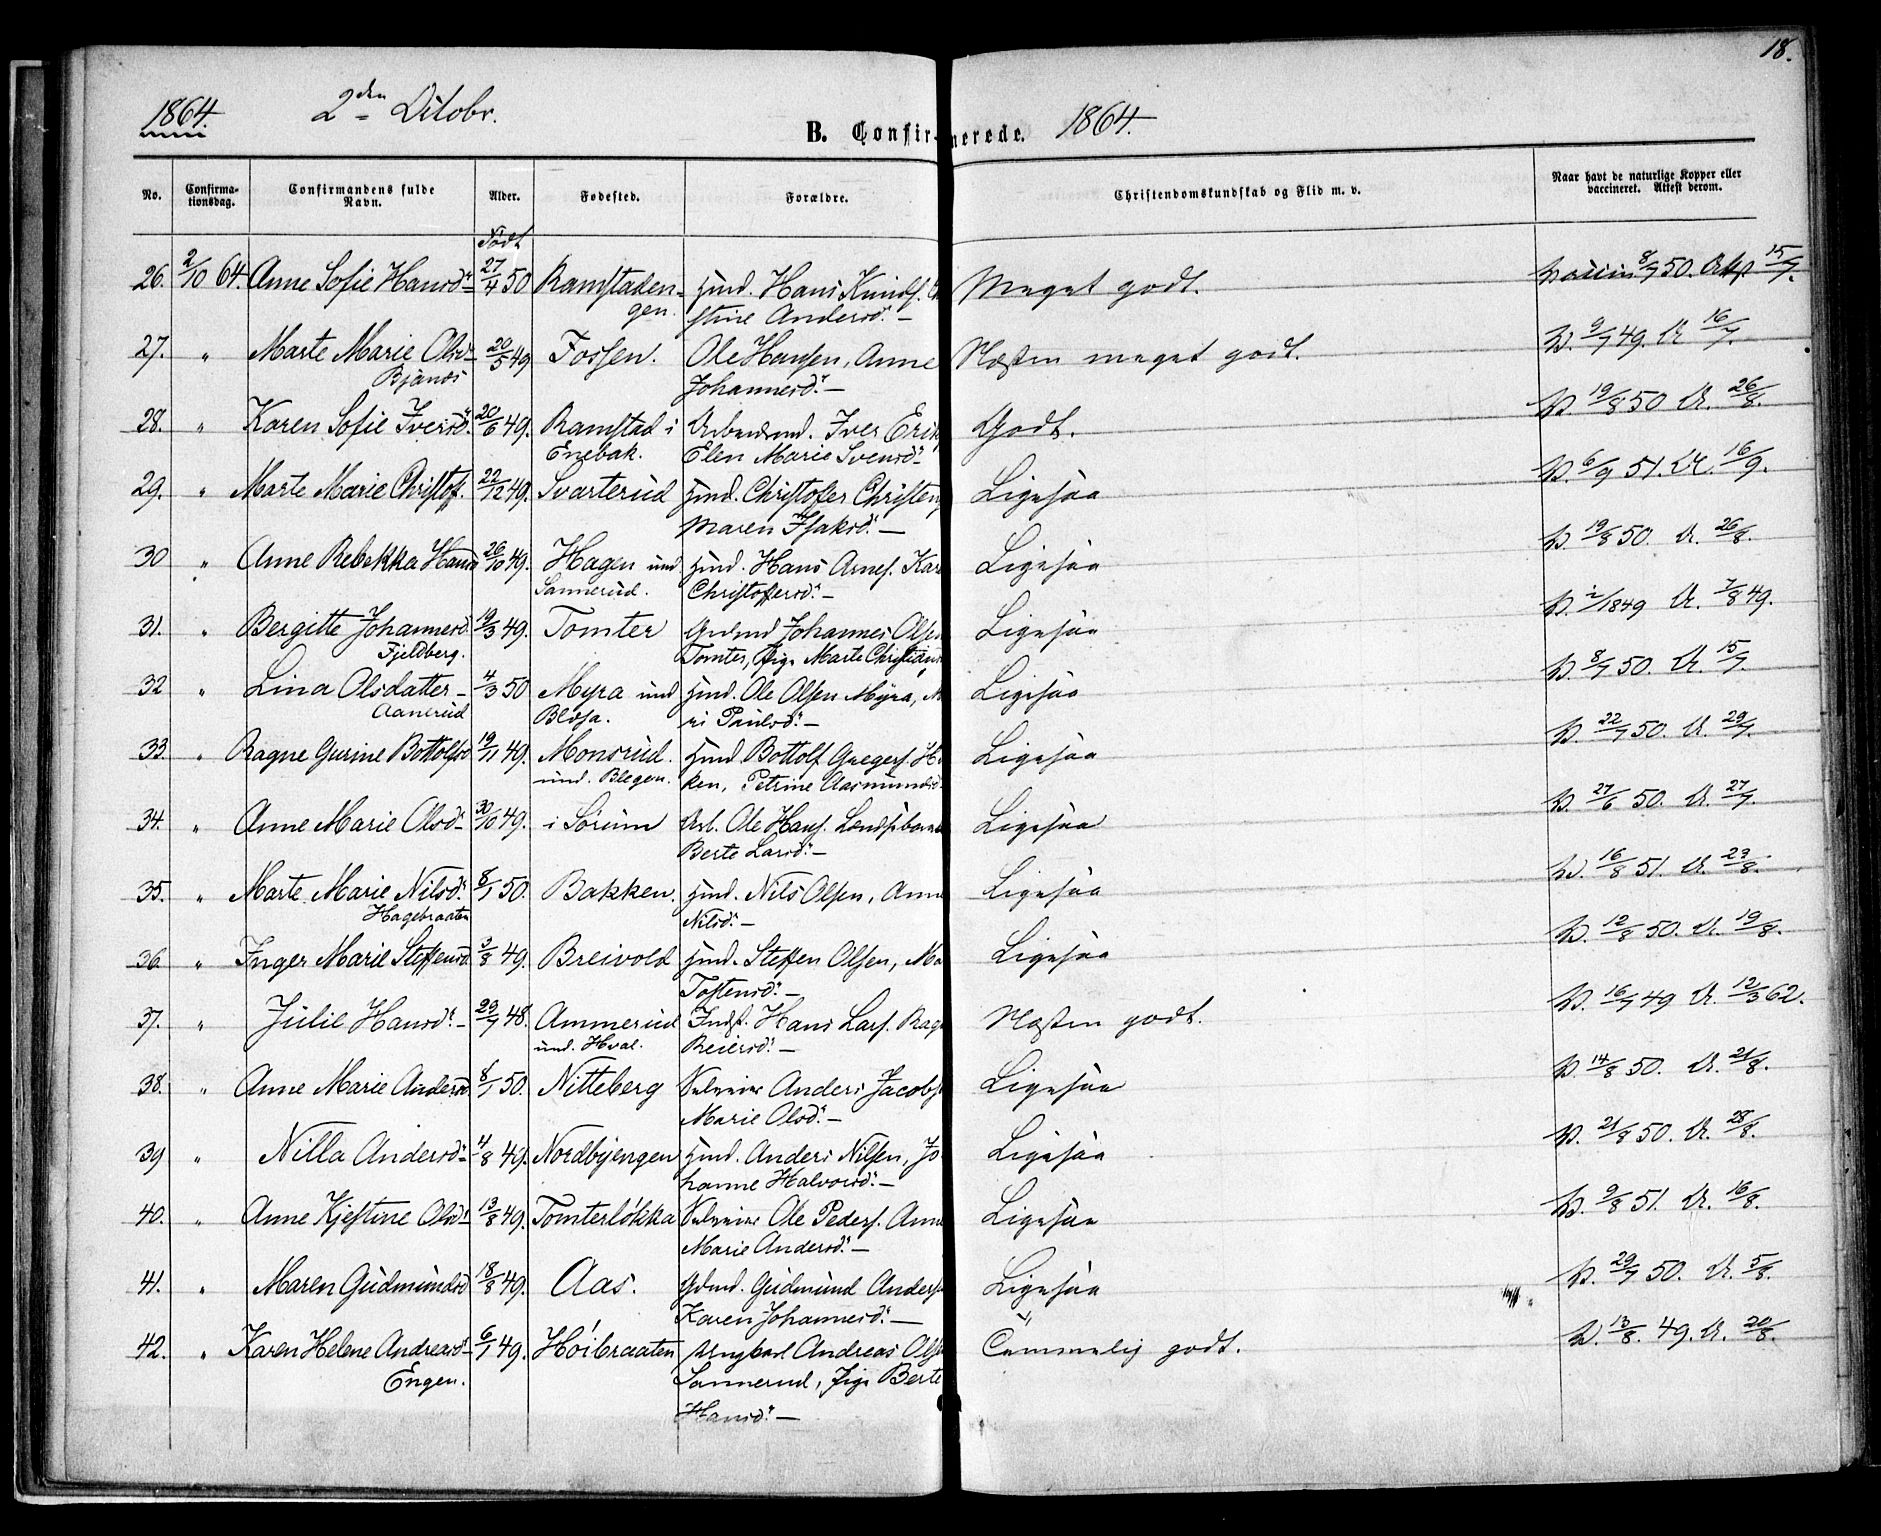 18.
1864. 2den Octobr. 1864.
B. Confirmerede.
No. Confirmationsdag. Confirmandens fulde Navn. Alder. Fødested. Forældre. Christendomskundskab og Flid m. v. Naar havt de naturlige Kopper eller vaccineret. Attest derom.
Født
26. 2/10 64. Anne Sofie Hansd. 27/4 50 Ramstaden- Hans Meget godt. 8/7 50. Att. 15/7.
gen. stine Andersd. —
27. " Marte Marie Olsd. 20/5 49 Fossen. Ole Hansen, Anne Næsten meget godt. V. 9/7 49. A 16/7.
Johannesd. —
28. " Karen Sofie Iversd. 20/6 49. Ramstad i Iver Erik Godt. V. 19/8 50 A. 26/8.
Enebak. Elen Marie Svensd. —
29. " Marte Marie Christof. 22/12 49. Svarterud Hmd. Christofer Christens Ligesaa V. 6/9 51. A. 16/9.
Maren Isaksd. —
30 " Anne Rebekka Hansd 26/10 49. Hagen und Hmd. Hans Arnes. Kar Ligesaa V. 19/8 50. A. 26/8.
Sannerud. Christoffersd. —
31. " Bergitte Johannesd. 19/3 49. Tomter Johannes Olsen Ligesaa V. /1849 A. 7/8 49.
Fjeldberg. Tomter, Pige Marte Christians
32 " Lina Olsdatter — 4/3 50 Myra und Hmd. Ole Olsen Myra, Ma Ligesaa V. 8/7 50. A. 15/7.
Aanerud ri Paulsd. —
33. " Ragne Gurine Bottolfsd 19/11 49. Monsrud. Hmd Bottolf Gregers. Ho Ligesaa V. 22/7 50. A. 29/7.
und. Blegen. ken, Petrine Aasmundsd.
34. " Anne Marie Olsd. 30/10 49. i Sørum Arb. Ole Hans. Ligesaa V. 27/6 50. A. 27/7.
Berte Larsd. —
35. " Marte Marie Nilsd. 8/1 50. Bakken. Hmd. Nils Olsen, Anne Ligesaa V. 16/8 51. A. 23/8.
Hagebraaten Nilsd. —
36 " Inger Marie Steffensd. 3/8 49. Breivold Hmd. Steffen Olsen, Ma Ligesaa V. 12/8 50. A. 19/8.
Tostensd. —
37. " Julie Hansd. — 29/7 48. Ammerud Indst. Hans Lars. Rag Næsten godt. V. 16/7 49 A. 12/3 62.
und. Hval. Reiersd. —
38. " Anne Marie Andersd 8/1 50. Nitteberg Selveier Anders Jacobs Ligesaa V. 14/8 50. A. 21/8.
Marie Olsd. —
39 " Nilla Andersd. 4/8 49. Nordbyengen Hmd. Anders Nilsen, Jo Ligesaa V. 21/8 50. A. 28/8.
hanne Halvorsd. —
40. " Anne Kjestine Olsd. 13/8 49. Tomterløkka Selveier Ole Peders. Anne Ligesaa V. 9/8 51. A. 16/8.
Marie Andersd. —
41. " Maren Gudmundsd 18/8 49. Aas. Gdmd. Gudmund Anders Ligesaa V. 29/7 50. A. 5/8.
Karen Johannesd. —
42. " Karen Helene Andreasd. 6/1 49. Høibraaten Ungkarl Andreas Ols Temmelig godt. V. 13/8. 49. A. 20/8.
Engen. Sannerud, Pige Berte
Hansd. —